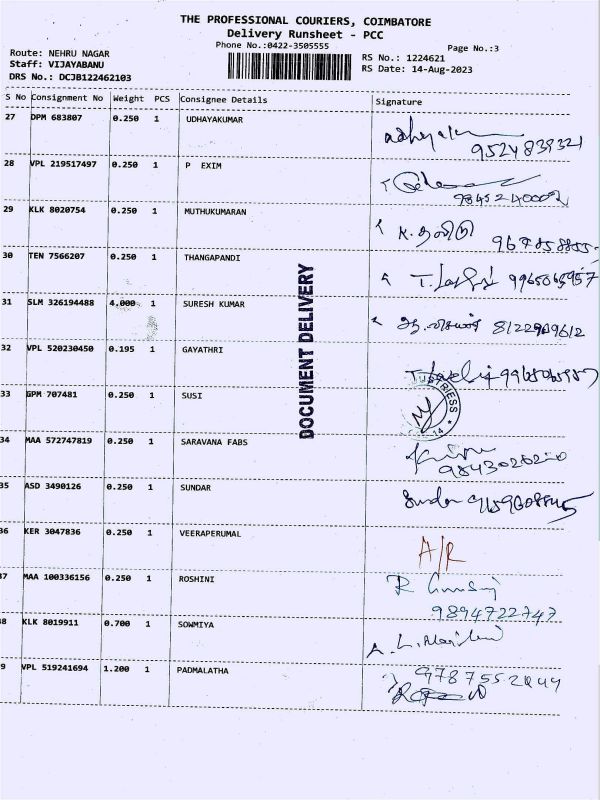 THE PROFESSIONAL COURIERS, COIMBATORE
Delivery Runsheet - PCC
Phone No.:0422-3505555
Page No.:3
Route: NEHRU NAGAR
Staff: VIJAYABANU
DRS No.: DCJB122462103
RS No.: 1224621
RS Date: 14-Aug-2023
S No Consignment No Weight PCS Consignee Details Signature
27 DPM 683807 0.250 1 UDHAYAKUMAR
9524839321
28 VPL 219517497 0.250 1 P EXIM
29 KLK 8020754 0.250 1 MUTHUKUMARAN
30 TEN 7566207 0.250 1 THANGAPANDI
31 SLM 326194488 4.000 1 SURESH KUMAR
32 VPL 520230450 0.195 1 GAYATHRI
33 GPM 707481 0.250 1 SUSI
34 MAA 572747819 0.250 1 SARAVANA FABS
35 ASD 3490126 0.250 1 SUNDAR
Sundar
36 KER 3047836 0.250 1 VEERAPERUMAL A/R
37 MAA 100336156 0.250 1 ROSHINI
9894722747
38 KLK 8019911 0.700 1 SOWMIYA
39 VPL 519241694 1.200 1 PADMALATHA
DOCUMENT DELIVERY